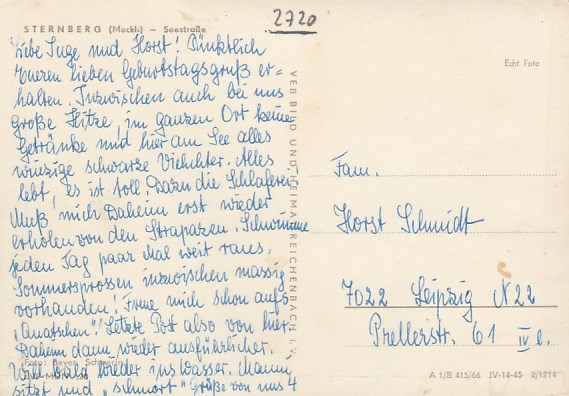 2720
STERNBERG (Meckl.) – Seestraße
Liebe Inge und Horst! Pünktlich
Eueren lieben Geburtstagsgruß er=
halten. Inzwischen auch bei uns
große Hitze, im ganzen Ort keine
Getränke und hier am See alles
winzige schwarze Viehchter. Alles
lebt, es ist toll. Dazu die Schlaferei
Muß mich Daheim erst wieder
erholen von den Strapazen. Schwimme
jeden Tag paar Mal weit raus.
Sommersprossen inzwischen massig
vorhanden! Freue mich schon aufs
"Quatschen"! Letzte Post also von hier.
Daheim dann wieder ausführlicher.
Will bald wieder ins Wasser. Mann
sitzt und "schmort" Grüße von uns 4
Foto: Beyer, Schwerin
VEB BILD UND HEIMAT REICHENBACH i. V.
Echt Foto
Fam.
Horst Schmidt
7022 Leipzig N 22
Prellerstr. 61 IV e.
A 1/B 415/66 IV-14-45 2/1214